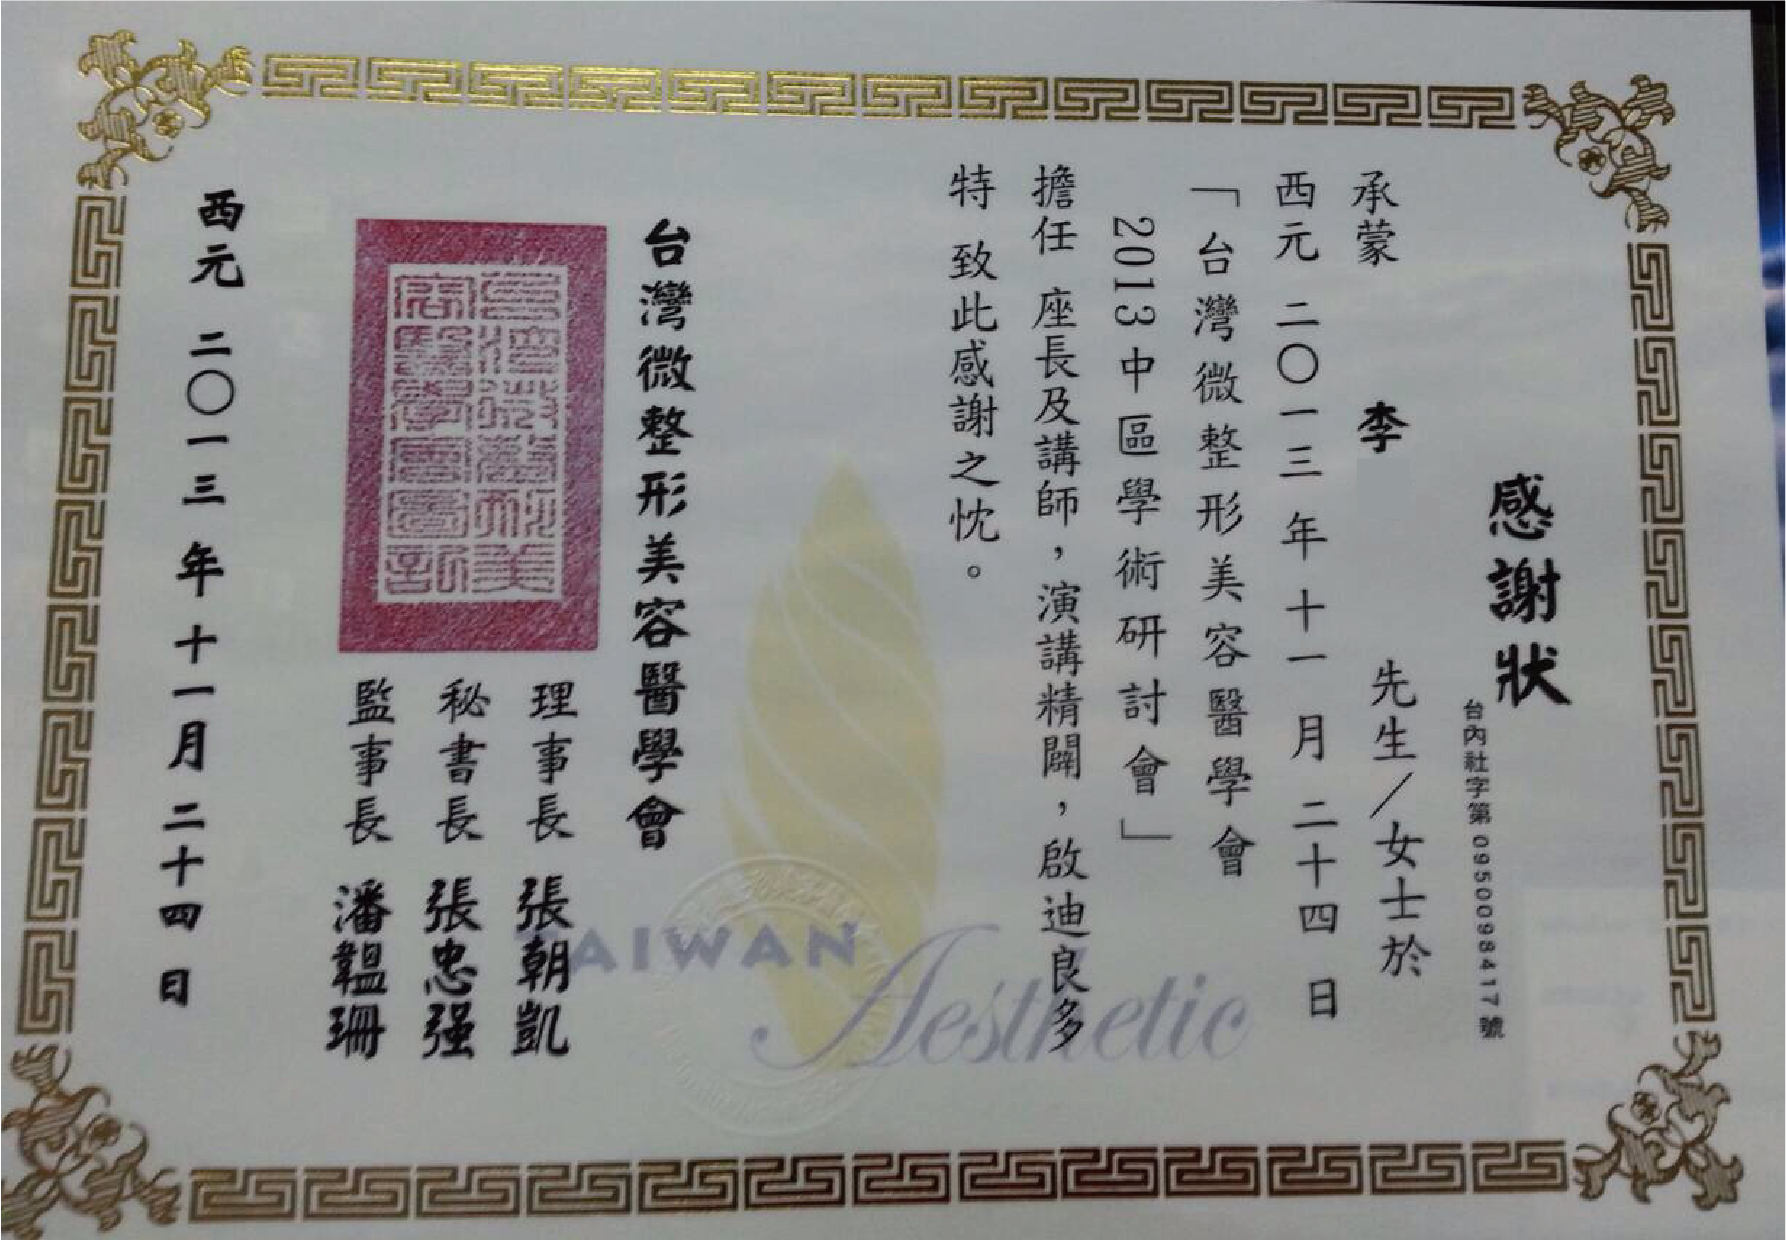 感謝狀
台內社字第0950098417號
承蒙 李 先生／女士於
西元 二〇一三 年 十一 月 二十四 日
「台灣微整形美容醫學會
2013中區學術研討會」
擔任 座長及講師，演講精闢，啟迪良多
特 致此感謝之忱。
台灣微整形美容醫學會
理事長 張朝凱
秘書長 張忠强
監事長 潘韞珊
西元 二〇一三 年 十一月 二十四 日
TAIWAN
Aesthetic